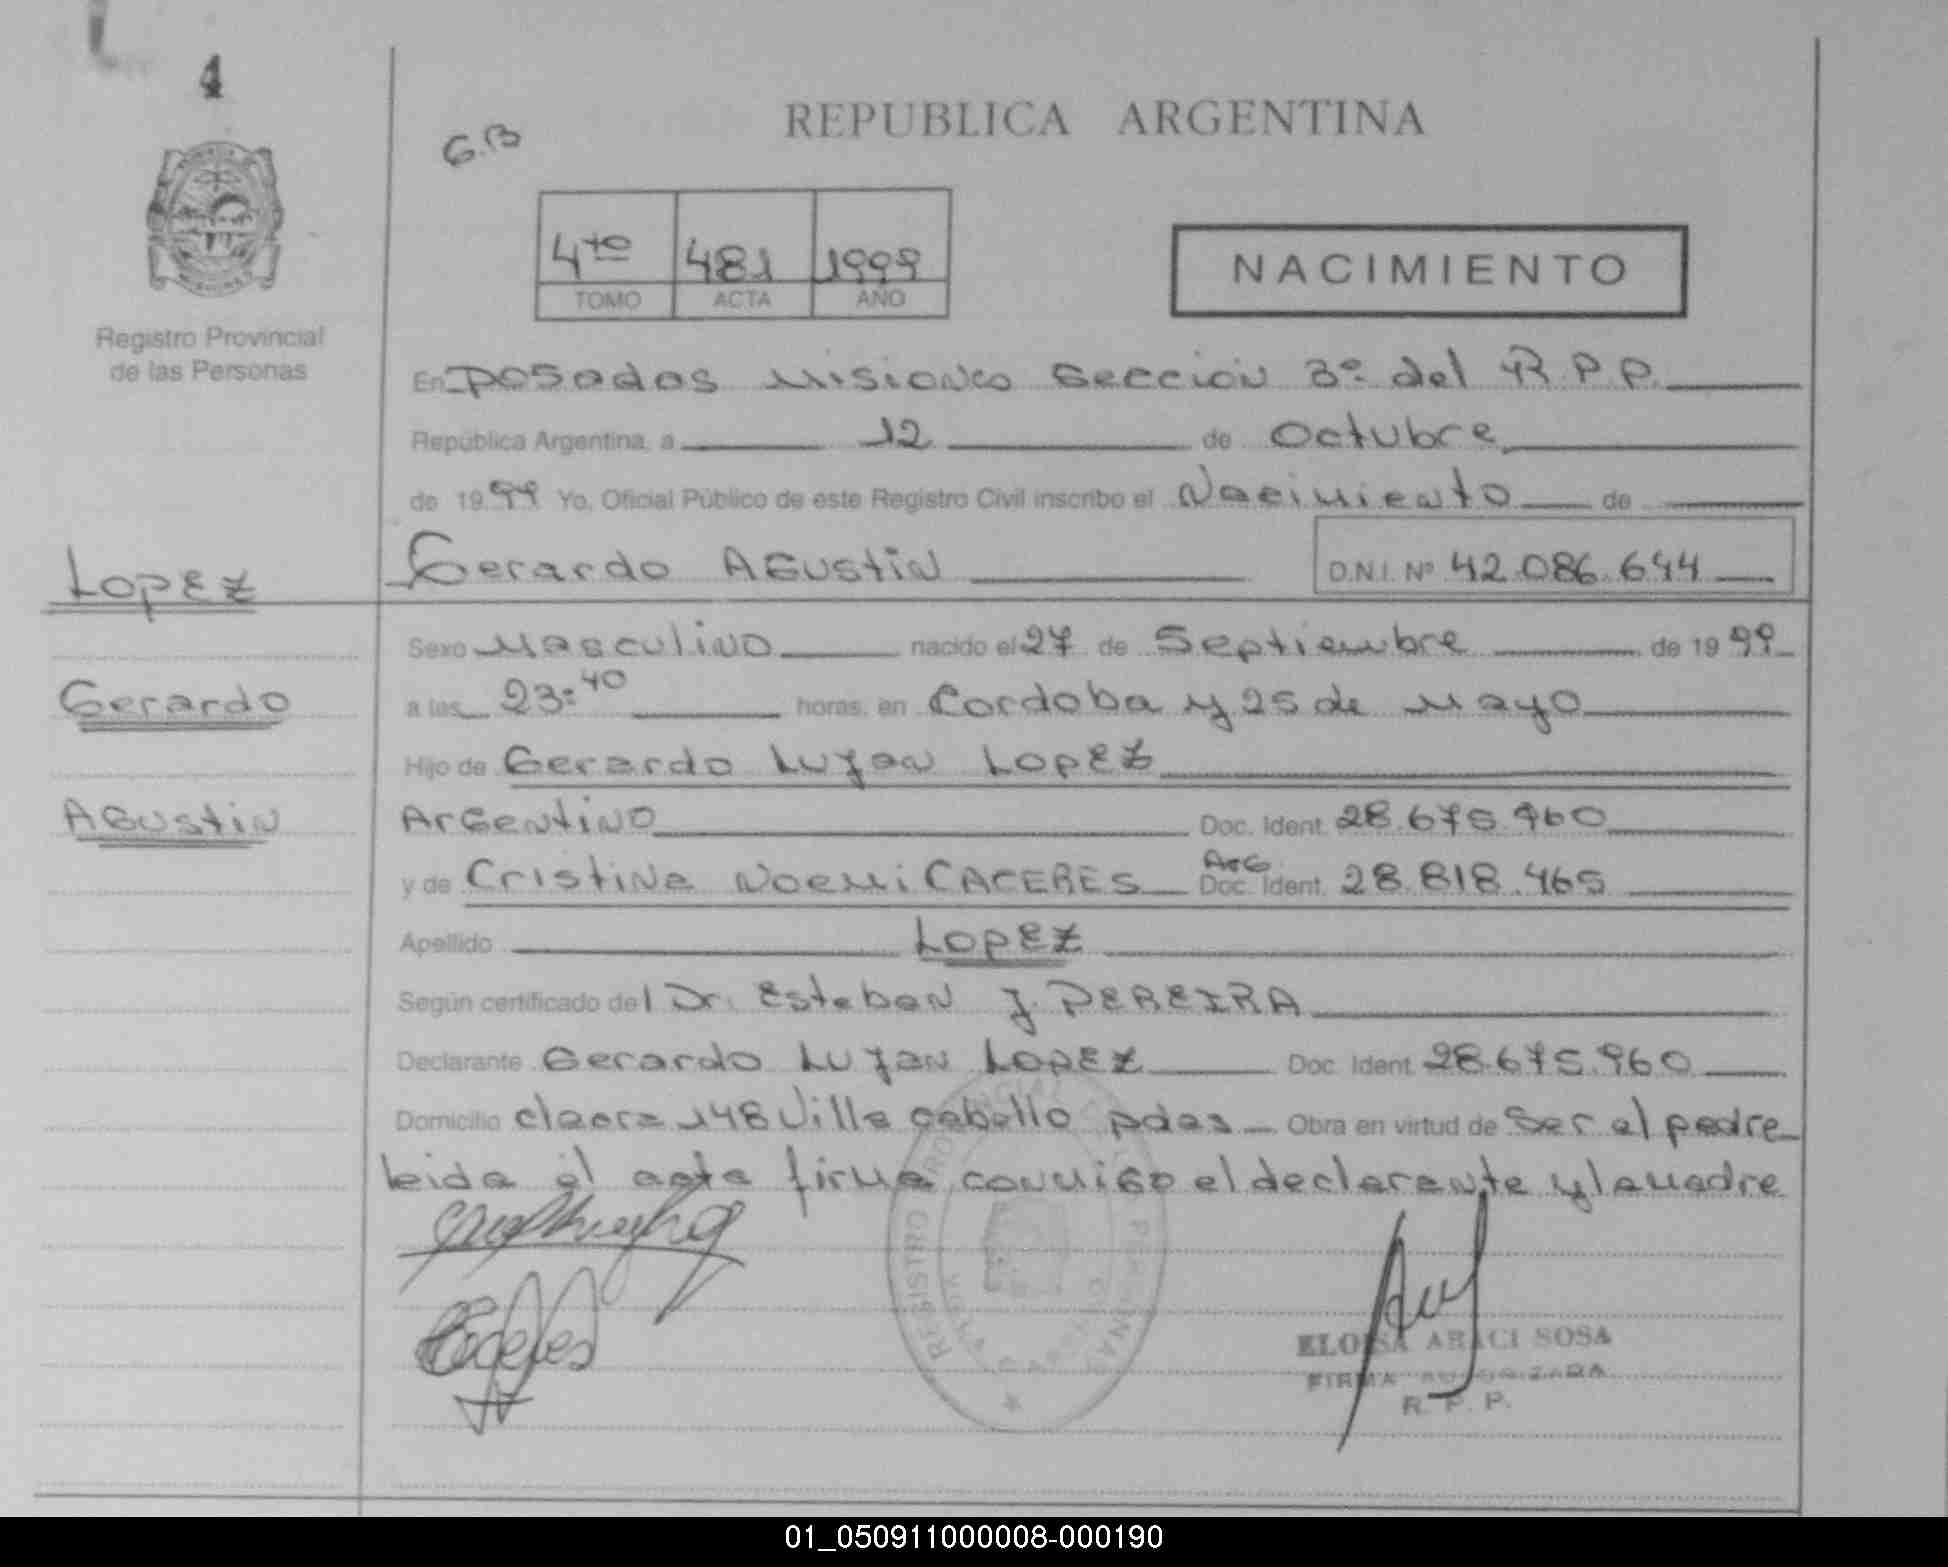 4
G.B
REPUBLICA ARGENTINA
4to 481 1999
TOMO ACTA AÑO
NACIMIENTO
Registro Provincial
de las Personas
En Posadas Misiones Sección 3º del R.P.P.
República Argentina, a 12 de Octubre
de 1999 Yo, Oficial Público de este Registro Civil inscribo el Nacimiento de
LOPEZ
Gerardo Agustin D.N.I. Nº 42.086.644
Sexo Masculino nacido el 27 de Septiembre de 1999
Gerardo
a las 23:40 horas, en Cordoba y 25 de Mayo
Hijo de Gerardo Lujan LOPEZ
Agustin
Argentino Doc. Ident. 28.675.960
y de Cristina Noemi CACERES Arg Doc. Ident. 28.818.465
Apellido LOPEZ
Según certificado del Dr. Esteban J. PEREIRA
Declarante Gerardo Lujan LOPEZ Doc. Ident. 28.675.960
Domicilio 148 Villa cabello pdas Obra en virtud de Ser el padre
leida el acta firma conmigo el declarante y la madre
REGISTRO PROVINCIAL DE LAS PERSONAS
ELOISA ARACI SOSA
FIRMA AUTORIZADA
R. P. P.
01_050911000008-000190